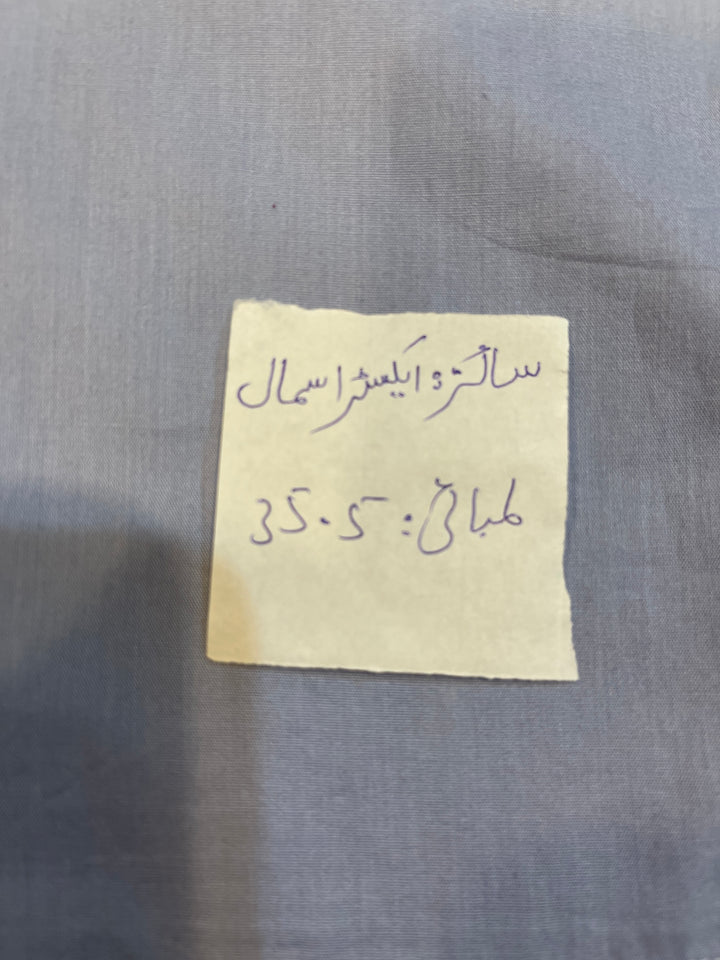 سائز: ایکسٹرا سمال
لمبائی: 35.5